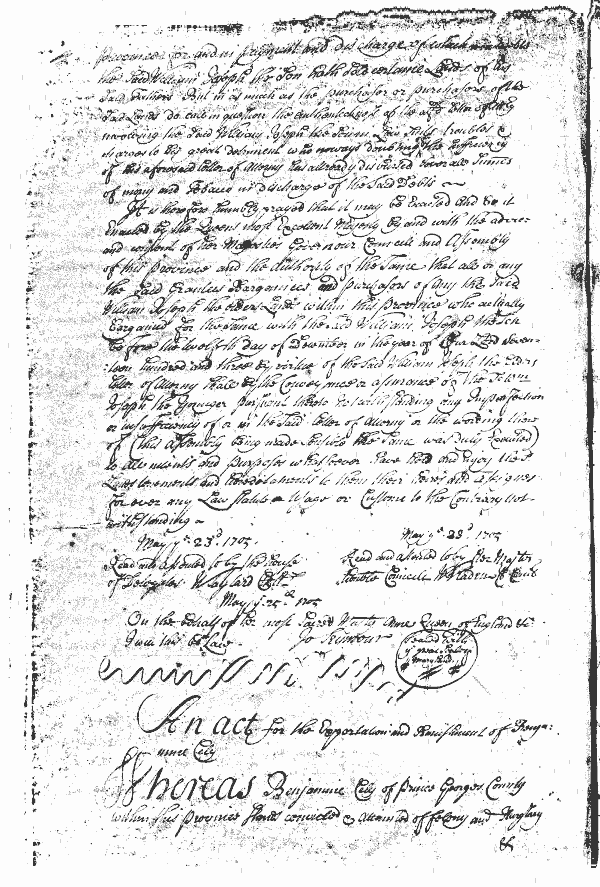 for and in payment and discharge of which
the said William Joseph the Son hath sold certaine Lands of his
said fathers But in as much as the purchaser or purchasers of the
said Lands do call in question the authenticness of the letter of Atty
the said William Joseph the Son in Law Suits troubles &
charges to his great detriment who noways doubting the sufficiency
of his aforesaid letter of Attorny has already disbursed severall summes
of mony and Tobacco in discharge of the said Debts
It is therefore humbly prayed that it may be Enacted And be it
Enacted by the Queens most Excellent Majesty by and with the advice
and consent of her Majesties Governour Councill and Assembly
of this Province and the Authority of the same that all or any
the said Grantees Bargainees and purchasers of any the said
William Joseph the elders Lands within this Province who actually
bargained for the same with the said William Joseph the Son
before the twelfth day of December in the year of Our Lord Seven
teen hundred and three by virtue of the said William Joseph the Elders
letter of Attorny shall by the Conveyance or assurance of the said Wm
Joseph the Younger pursuant thereto notwithstanding any Imperfection
or insufficiency of or in the said letter of Attorny or the wording there
of (this assembly being made the same was duly Executed)
to all intents and purposes whatsoever have hold and enjoy the
Lands tenements and hereditaments to them their heires and assignes
for ever any Law Statute Usage or Custome to the Contrary not
withstanding
May ye 23d 1705
May ye 23d 1705
Read and assented to by the house
Read and assented to by Her Majtys
of Delegates W Taylard
honble Councill W Bladen Cl Council
May ye 25th 1705
On the behalf of the most Sacred Majty Anne Queen of England &c
I will this be a Law
Jo Seymour
An act for the Exportation and Banishment of Benja:
mine Cely
Whereas Benjamine Celly of Prince Georges County
within this Province stands convicted & attainted of felony and Burglary
&